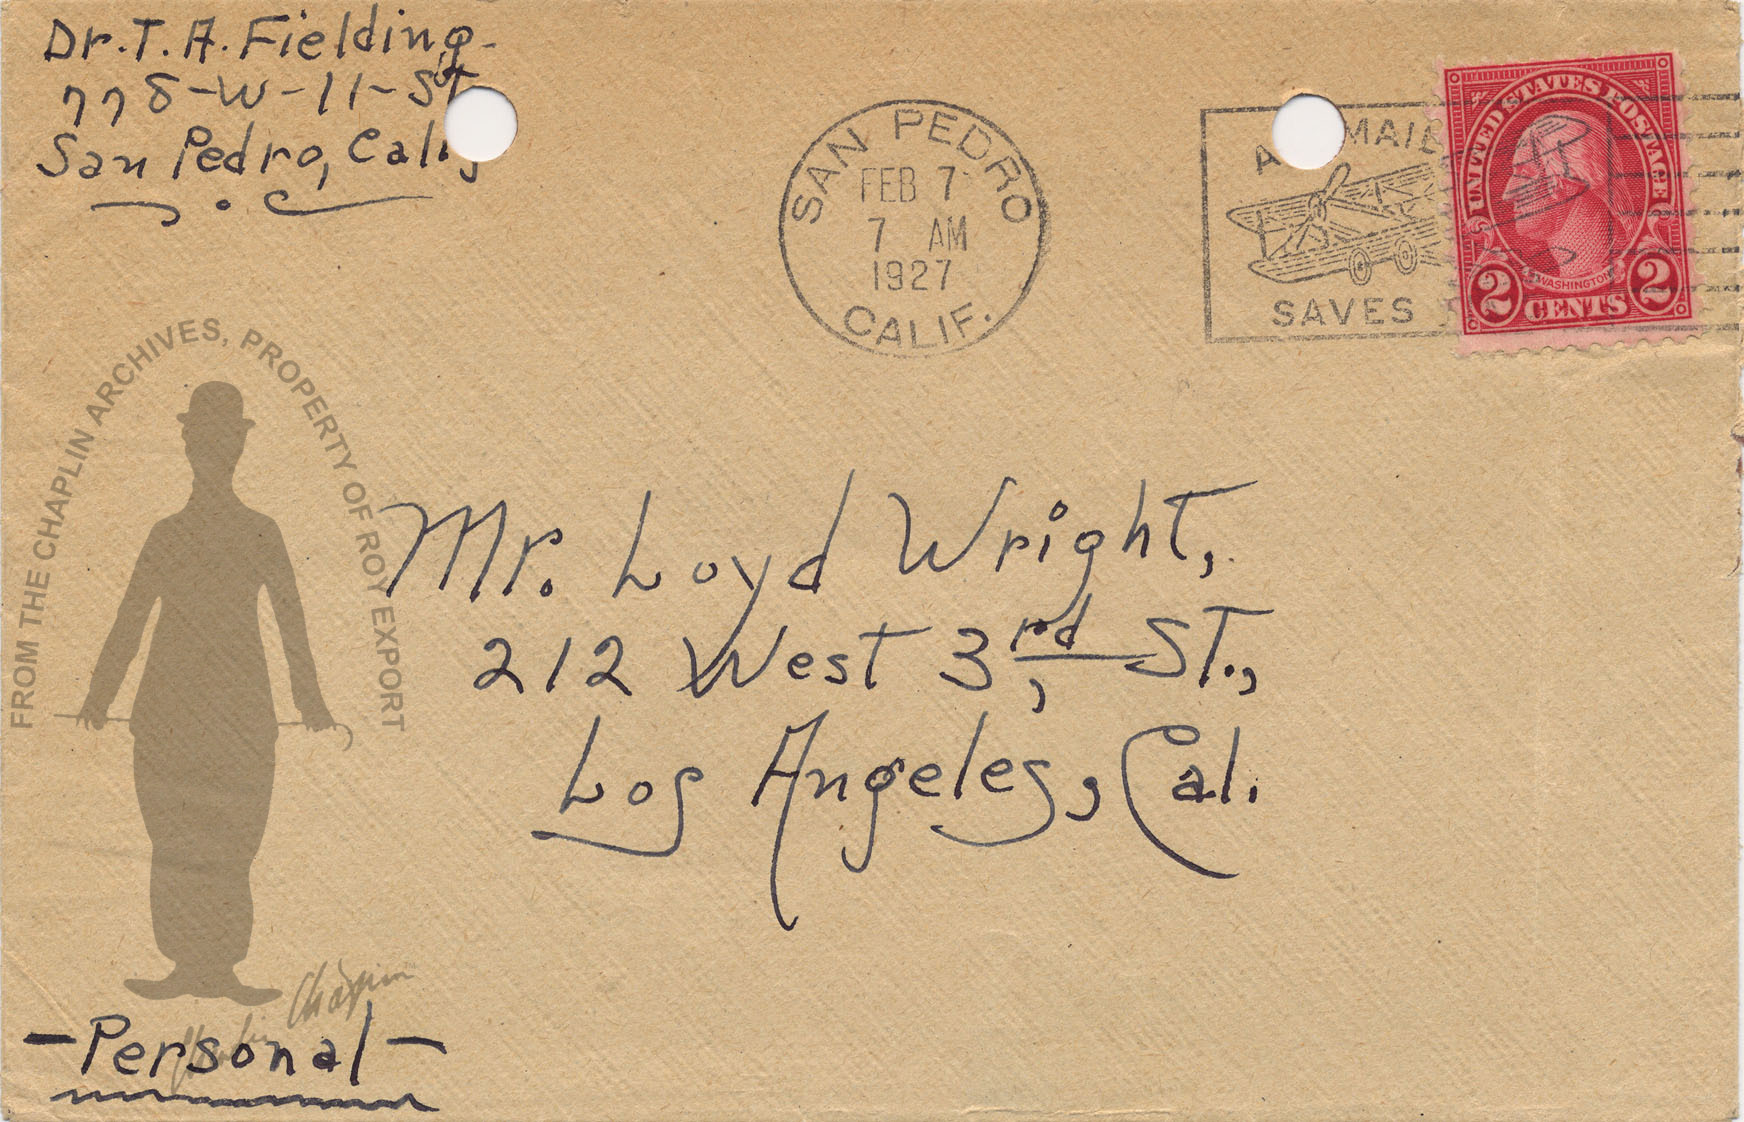 Dr. T. A. Fielding.
778-W-11-St
San Pedro, Calif
SAN PEDRO
FEB 7
7 AM
1927
CALIF.
MAIL
SAVES
UNITED STATES POSTAGE
WASHINGTON
2 CENTS 2
FROM THE CHAPLIN ARCHIVES, PROPERTY OF ROY EXPORT
Mr. Loyd Wright,
212 West 3rd, St.,
Los Angeles, Cal.
Charlie Chaplin
-Personal-